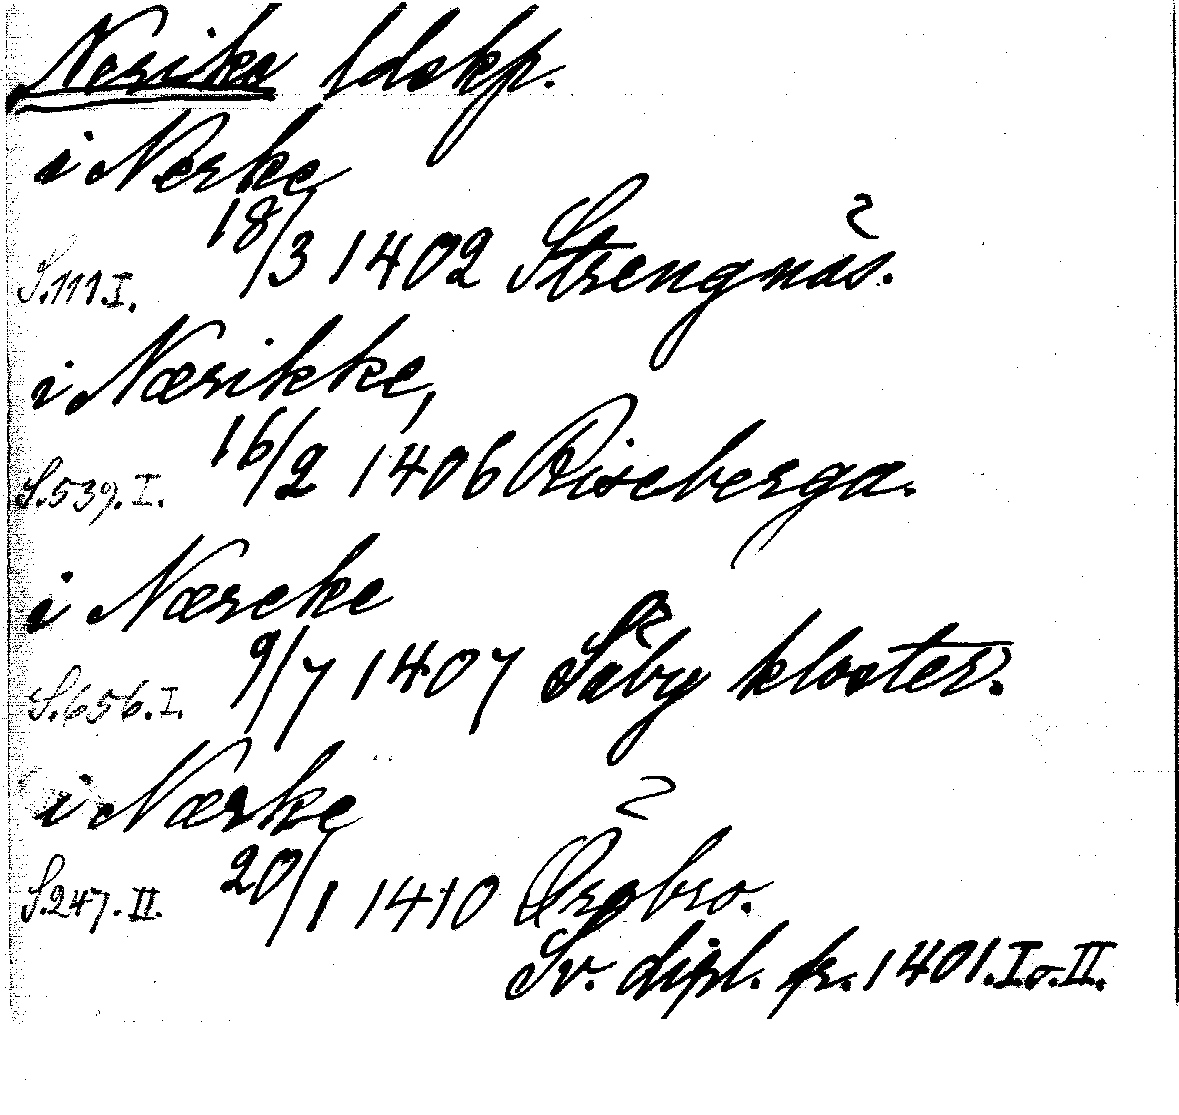 Nerike ldskp.
i Nerke
18/3 1402 Strengnäs.
S.111.I.
i Nærikke,
16/2 1406 Riseberga.
S.539.I.
i Næreke
9/7 1407 Säby kloster.
S.656.I.
i Nærke
20/1 1410 Örebro.
S.247.II.
Sv. dipl. fr. 1401.I o. II.